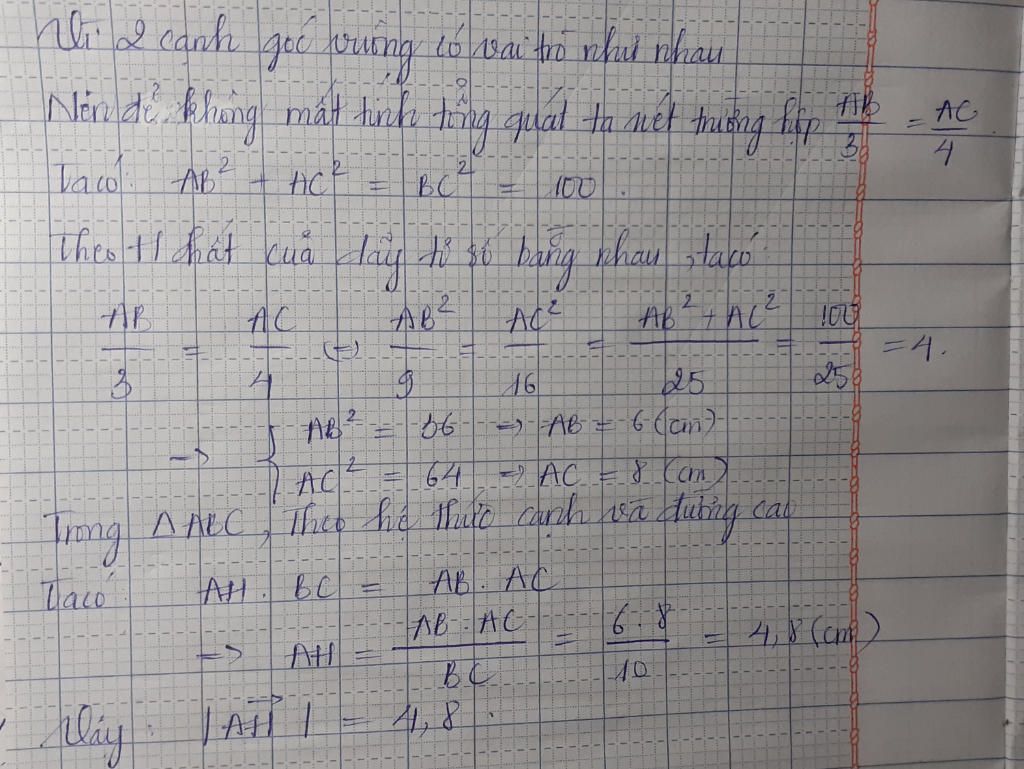 Vì 2 cạnh góc vuông có vai trò như nhau
Nên để không mất tính tổng quát ta xét trường hợp AB/3 = AC/4
Ta có: AB² + AC² = BC² = 100.
Theo t/c chất của dãy tỉ số bằng nhau, ta có:
AB/3 = AC/4 (=) AB²/9 = AC²/16 = (AB² + AC²)/25 = 100/25 = 4.
→ { AB² = 36 → AB = 6 (cm)
AC² = 64 → AC = 8 (cm)
Trong Δ ABC, Theo hệ thức cạnh và đường cao
Ta có: AH . BC = AB . AC
=> AH = (AB . AC)/BC = (6 . 8)/10 = 4,8 (cm)
Vậy: |AH→| = 4,8.